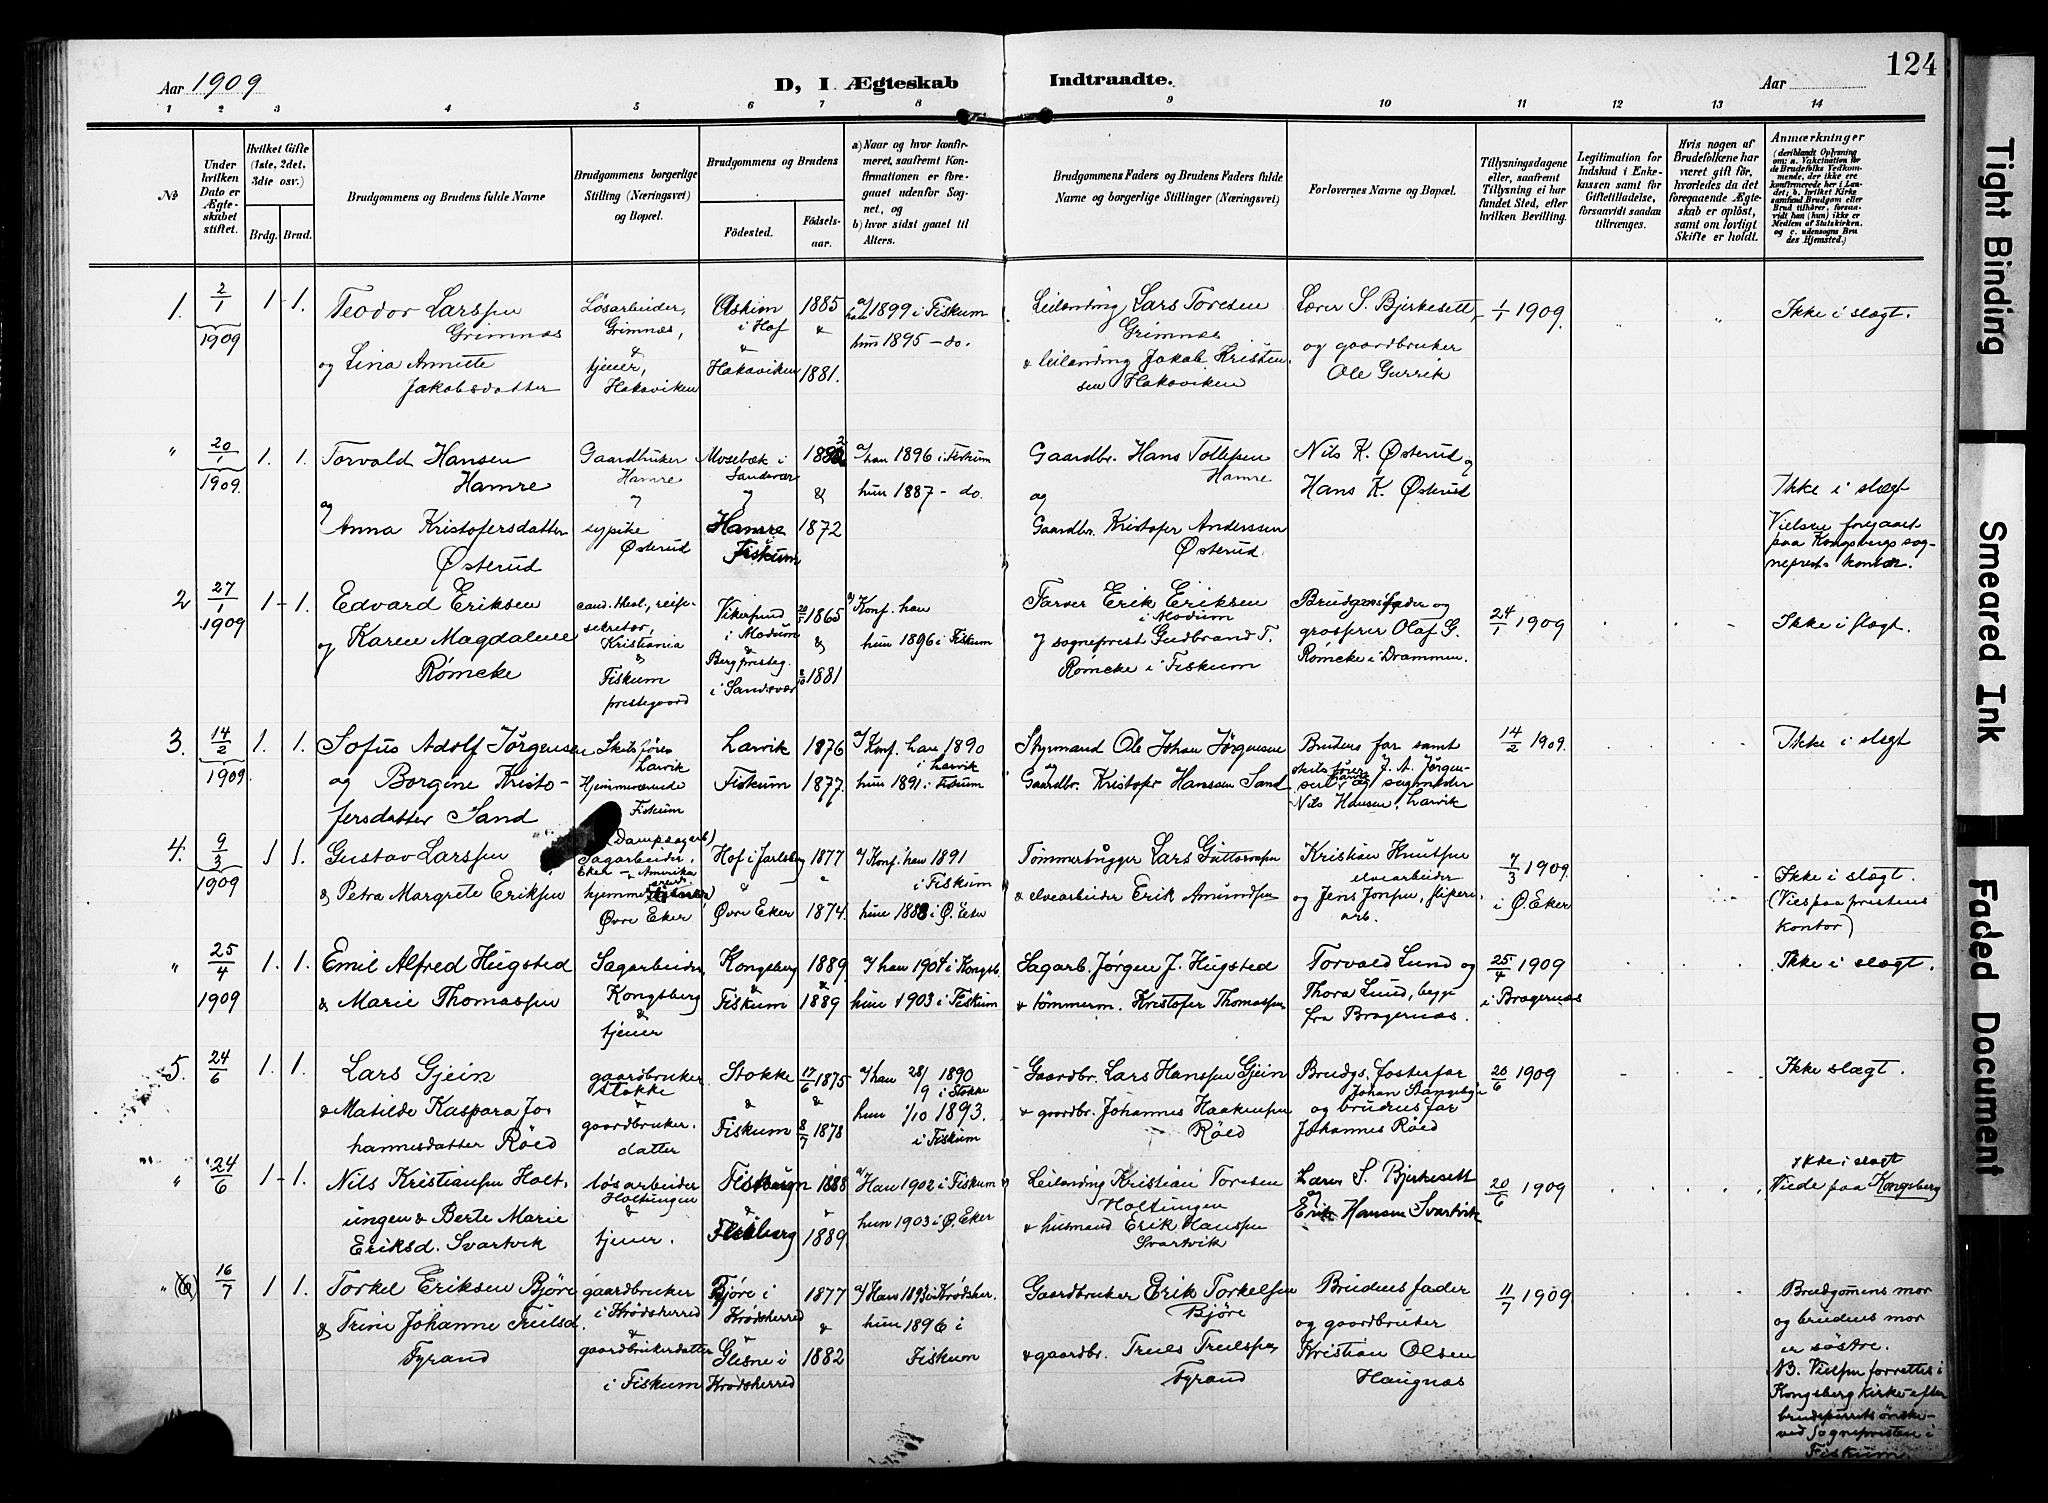 124
Aar 1909
D, I Ægteskab Indtraadte.
Aar
1 2 3 4 5 6 7 8 9 10 11 12 13 14
No
Under hvilken Dato er Ægteskabet stiftet.
Hvilket Gifte (1ste, 2det, 3die osv.)
Brdg. Brud.
Brudgommens og Brudens fulde Navne
Brudgommens borgerlige Stilling (Næringsvei) og Bopæl.
Brudgommens og Brudens
Fødested.
Fødselsaar.
a) Naar og hvor konfirmeret, saafremt Konfirmationen er foregaaet udenfor Sognet, og
b) hvor sidst gaaet til Alters.
Brudgommens Faders og Brudens Faders fulde Navne og borgerlige Stillinger (Næringsvei)
Forlovernes Navne og Bopæl.
Tillysningsdagene eller, saafremt Tillysning ei har fundet Sted, efter hvilken Bevilling.
Legitimation for Indskud i Enkekassen samt for Giftetilladelse, forsaavidt saadan tiltrænges.
Hvis nogen af Brudefolkene har været gift før, hvorledes da det foregaaende Ægteskab er opløst, samt om lovligt Skifte er holdt.
Anmærkninger
(deriblandt Oplysning om: a. Vakcination for de Brudefolks Vedkommende, der ikke ere konfirmerede her i Landet; b. hvilket Kirkesamfund Brudgom eller Brud tilhører, forsaavidt han (hun) ikke er Medlem af Statskirken, og c. udensogns Brudes Hjemsted.)
1. 2/1 1909 1 - 1.
Teodor Larssen
Grimnæs
og Lina Annette
Jakobsdatter
Løsarbeider,
Grimnæs,
&
tjener,
Hakaviken
i Hof
&
Hakaviken
1885
&
1881.
a/ han 1899 i Fiskum
hun 1895 - do.
Leilænding Lars Toresen
Grimnæs
& leilænding Jakob Kristensen Hakaviken
Lærer S. Bjerkesett,
og gaardbruker
Ole Gurrik
1/1 1909.
Ikke i slægt.
" 20/1 1909. 1. 1.
Torvald Hansen
Hamre
og
Anna Kristofersdatter
Østerud
Gaardbruker
Hamre
sypike
Østerud
Mosebæk i
Sandsvær
Fiskum
1882
&
1872
a/ han 1896 i Fiskum
hun 1887 - do.
Gaardbr. Hans Tollefsen
Hamre
og
Gaardbr. Kristofer Anderssen
Østerud.
Nils K. Østerud og
Hans K. Østerud
Ikke i slægt
Vielsen foregaaet
paa Kongsbergs sogneprests kontor.
2 27/1 1909 1 - 1.
Edvard Eriksen
og Karen Magdalene
Römcke
cand. theol., reisesekretær,
Kristiania
&
Fiskum
prestegaard
Vikersund
i Modum
&
Berg presteg.
i Sandsvær
1865
&
1881
a/ Konf. han
hun 1896 i Fiskum
Farver Erik Eriksen
i Modum
og sogneprest Gudbrand T.
Römcke i Fiskum
Brudgs. fader og
grosserer Olaf G.
Römcke i Drammen.
24/1 1909
Ikke i slægt.
3. 14/2 1909. 1. 1.
Sofus Adolf Jörgensen
og Borgine Kristofersdatter Sand
Skibsfører
Larvik
Hjemmeværende
Fiskum
Larvik
Fiskum
1876
1877.
a/ Konf. han 1890
i Larvik
hun 1891 i Fiskum
Styrmand Ole Johan Jörgensen
og
Gaardbr. Kristofer Hanssen Sand
Brudens far samt
skibsfører J. A. Jörgensen og sagmester
Nils Hansen, Larvik
14/2 1909.
Ikke i slægt
4. 9/3 1909 1 1.
Gustav Larssen
& Petra Margrete Eriksen
(Dampsagarb)
Sagarbeider,
Eker - Amerika
Øvre Eker
Hof i Jarlsberg
&
Øvre Eker
1877
1874.
a/ Konf. han 1891
i Fiskum
hun 1888 i Ø. Eker
Tömmerhugger Lars Guttormsen
& elvearbeider Erik Amundsen
Kristian Knutsen
elvearbeider
og Jens Jonsen, sliperiarb.
7/3 1909.
i Ø. Eker
Ikke i slægt.
(Vies paa prestens
kontor)
" 25/4 1909 1. 1.
Emil Alfred Hugsted
& Marie Thomassen
Sagarbeider,
Kongsberg
&
tjener
Kongsberg
&
Fiskum
1889.
&
1889
a/ han 1904 i Kongsb.
hun 1903 i Fiskum
Sagarb. Jörgen J. Hugsted
& tömmerm. Kristofer Thomassen
Torvald Lund og
Thora Lund, begge
fra Bragernæs.
25/4 1909
i Bragernæs
Ikke i slægt.
5. 24/6 1. 1.
Lars Gjein
& Matilde Kaspara Johannesdatter Röed
gaardbruker
Stokke
&
gaardbrukerdatter
Stokke
&
Fiskum
17/6 1875
&
8/7 1878
a/ han 28/9 1890
i Stokke
hun 1/10 1893.
i Fiskum
Gaardbr. Lars Hanssen Gjein
& gaardbr. Johannes Haakensen
Röed
Brudgs. fosterfar
Johan Stangeby
og brudens far
Johannes Röed
20/6 1909
Ikke slægt.
" 24/6 1 - 1.
Nils Kristiansen Holtungen & Berte Marie
Eriksd. Svartvik
løsarbeider
Holtungen
&
tjener.
Flesberg
1888
1889.
a/ Han 1902 i Fiskum
hun 1903 i Ø. Eker
Leilænding Kristian Toresen
Holtungen
& husmand Erik Hanssen
Svartvik
Lærer S. Bjerkesett
og
Erik Hansen Svartvik
20/6 1909
Ikke i slægt
Viede paa Kongsberg
" (6) 16/7 1 1.
Torkel Eriksen Björe
& Trine Johanne Trulsd.
Fyrand
gaardbruker
i Krödsherred
&
gaardbrukerdatter
i Fiskum
Björe i
Krödsherred
&
Glesne i
Krödsherred
1877
&
1882
a/ Han 1893 i Krödsher.
hun 1896 i
Fiskum
Gaardbruker Erik Torkelsen
Björe
& gaardbr. Truls Trulssen
Fyrand
Brudens fader
og gaardbruker
Kristian Olsen
Haugnæs
11/7 1909.
Brudgommens mor
og brudens mor
er søstre.
NB. Vielsen forrettes i
Kongsberg kirke efter
brudeparrets ønske
ved Sognepresten i
Fiskum.
Tight Binding
Smeared Ink
Faded Document